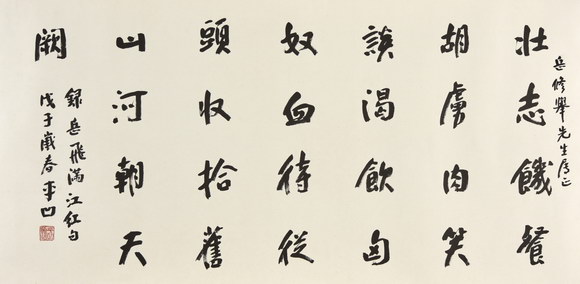 岳修舉先生属正
壯志饑餐
胡虜肉笑
談渴飲匈
奴血待從
頭收拾舊
山河朝天
闕
錄岳飛滿江紅句
戊子歲春平凹